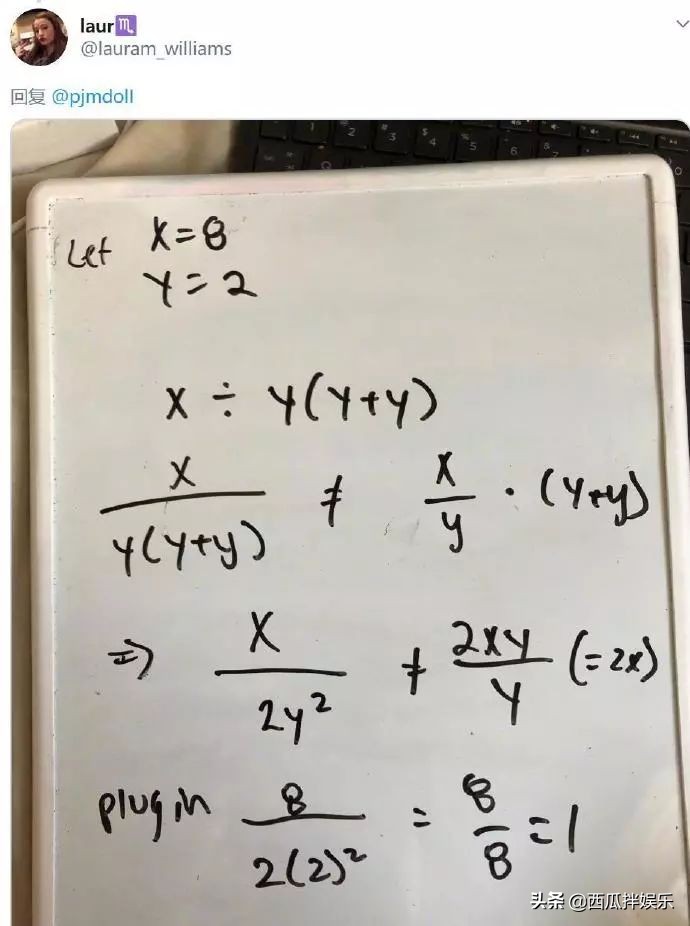 laur♏
@lauram_williams
回复 @pjmdoll
Let x=8
y=2
x ÷ y(y+y)
x/y(y+y) ≠ x/y · (y+y)
⇒ x/2y² ≠ 2xy/y (=2x)
plug in 8/2(2)² = 8/8 = 1
头条 @西瓜拌娱乐